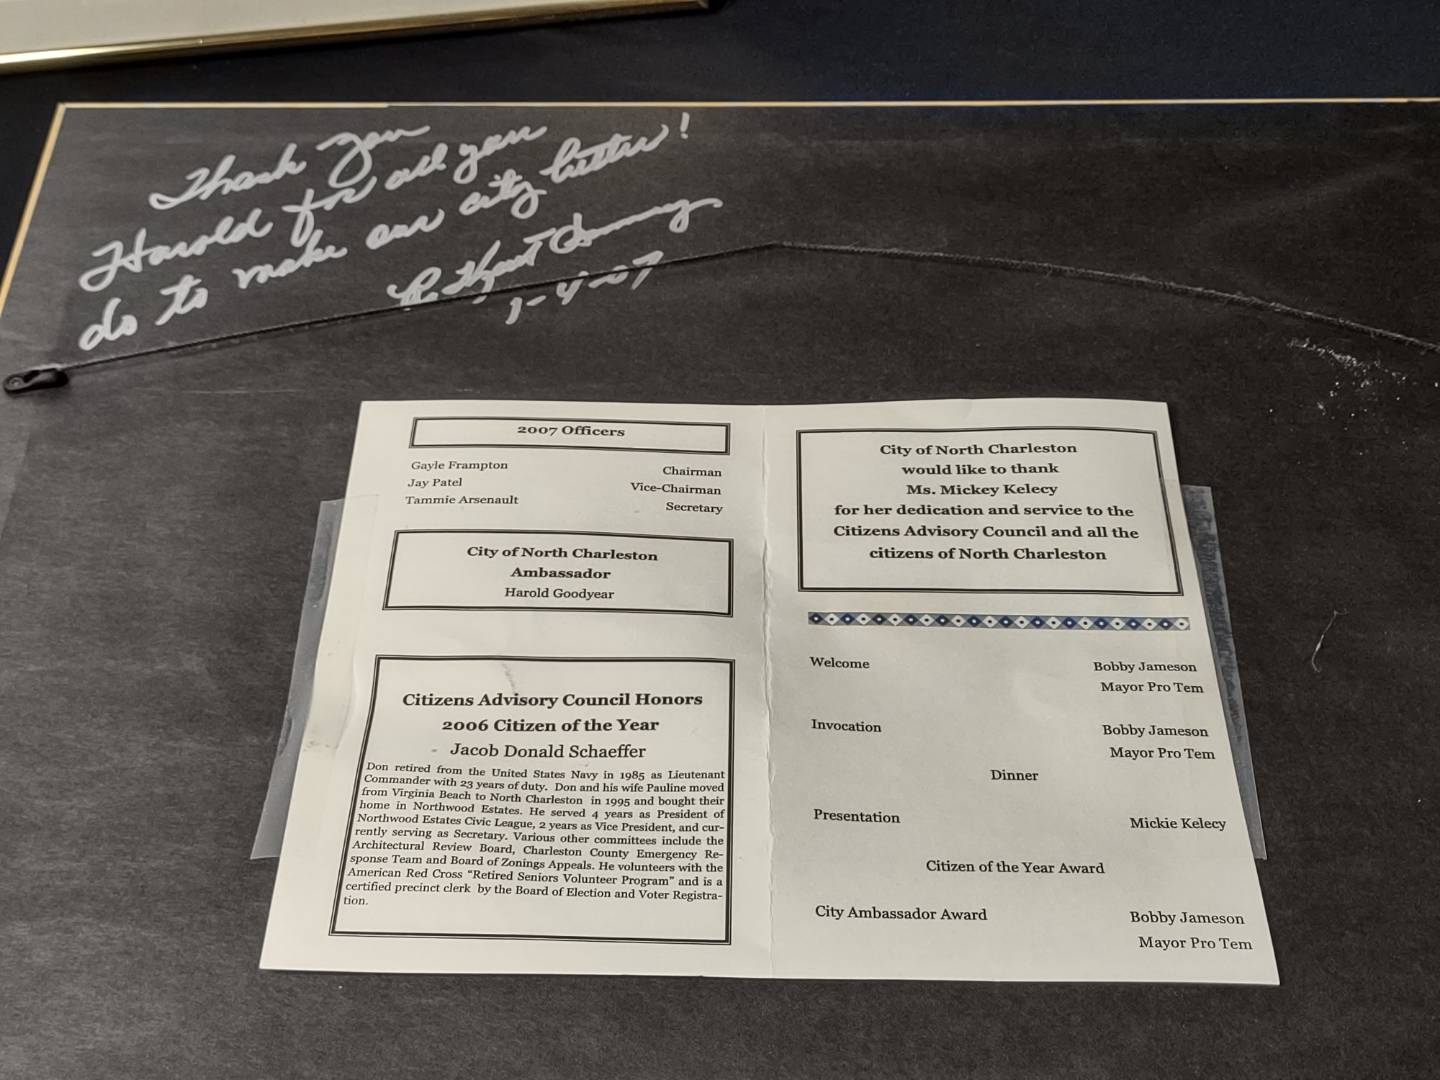 Thank you
Harold for all you
do to make our city better!
1-4-07
2007 Officers
Gayle Frampton Chairman
Jay Patel Vice-Chairman
Tammie Arsenault Secretary
City of North Charleston
Ambassador
Harold Goodyear
Citizens Advisory Council Honors
2006 Citizen of the Year
Jacob Donald Schaeffer
Don retired from the United States Navy in 1985 as Lieutenant
Commander with 23 years of duty. Don and his wife Pauline moved
from Virginia Beach to North Charleston in 1995 and bought their
home in Northwood Estates. He served 4 years as President of
Northwood Estates Civic League, 2 years as Vice President, and cur-
rently serving as Secretary. Various other committees include the
Architectural Review Board, Charleston County Emergency Re-
sponse Team and Board of Zonings Appeals. He volunteers with the
American Red Cross “Retired Seniors Volunteer Program” and is a
certified precinct clerk by the Board of Election and Voter Registra-
tion.
City of North Charleston
would like to thank
Ms. Mickey Kelecy
for her dedication and service to the
Citizens Advisory Council and all the
citizens of North Charleston
Welcome Bobby Jameson
Mayor Pro Tem
Invocation Bobby Jameson
Mayor Pro Tem
Dinner
Presentation Mickie Kelecy
Citizen of the Year Award
City Ambassador Award Bobby Jameson
Mayor Pro Tem